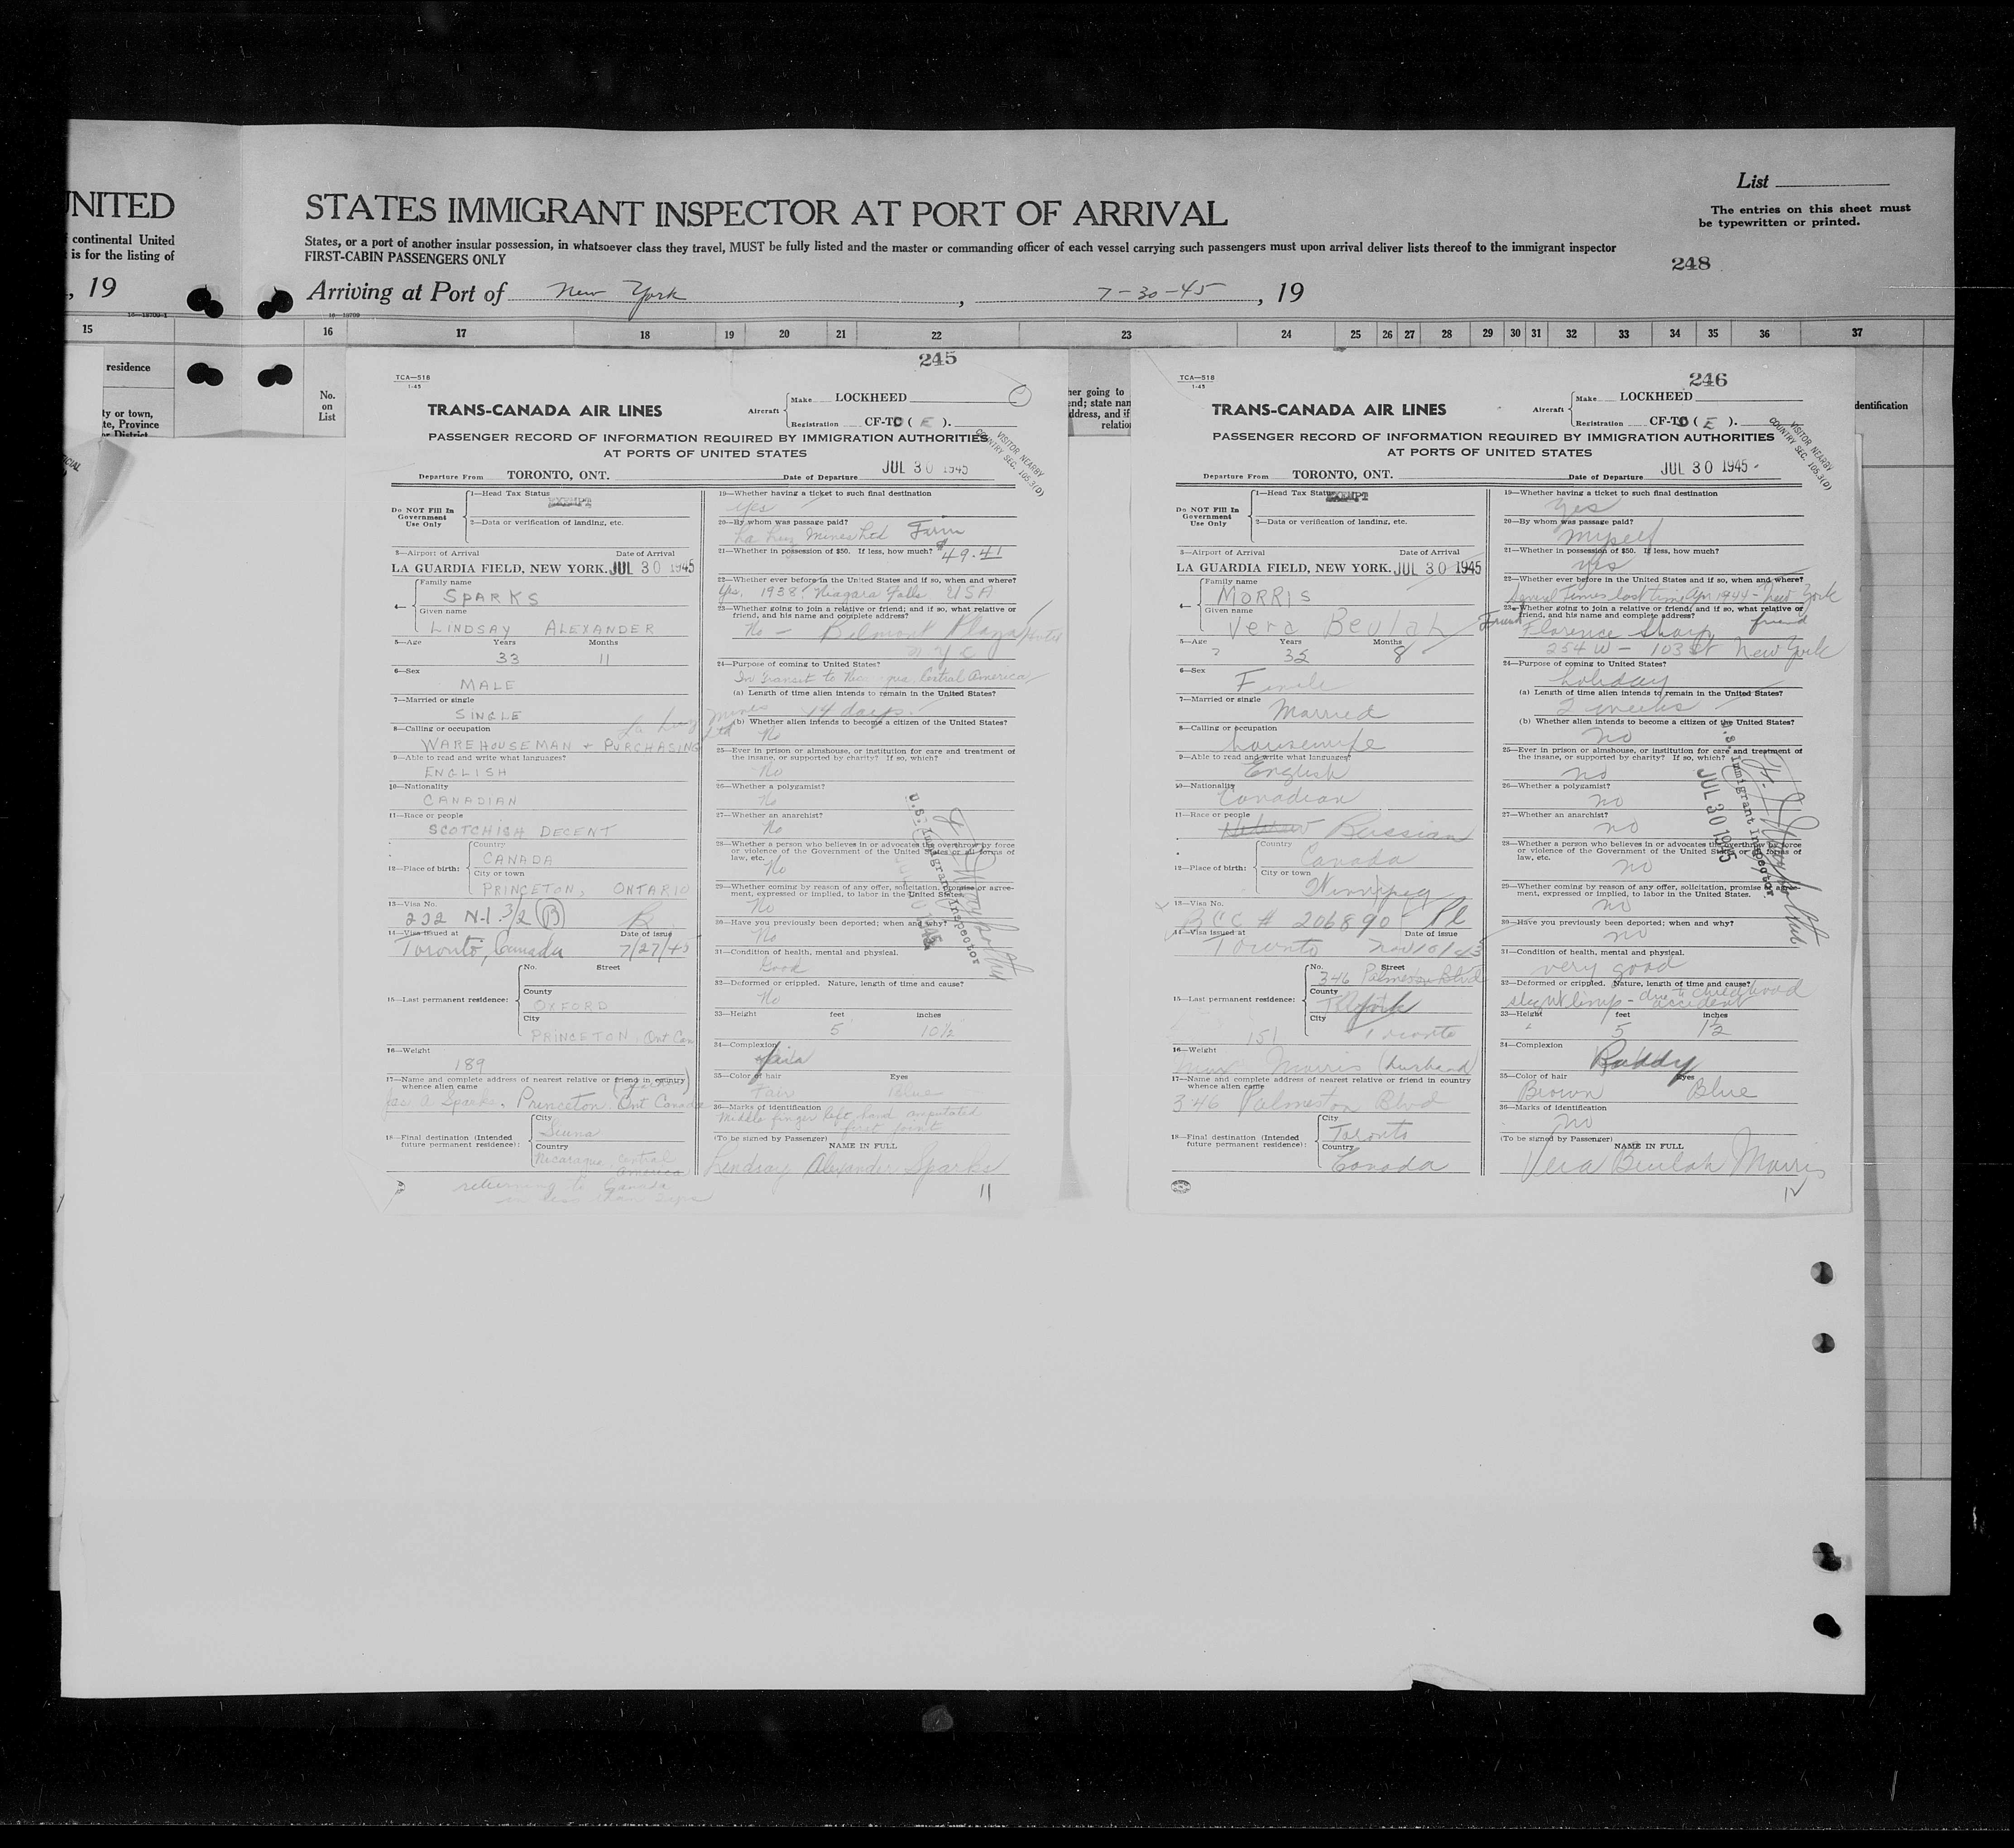 UNITED
continental United
is for the listing of
, 19
16—18709-1
15
residence
ty or town,
te, Province
or District
STATES IMMIGRANT INSPECTOR AT PORT OF ARRIVAL
States, or a port of another insular possession, in whatsoever class they travel, MUST be fully listed and the master or commanding officer of each vessel carrying such passengers must upon arrival deliver lists thereof to the immigrant inspector
FIRST-CABIN PASSENGERS ONLY
List
The entries on this sheet must
be typewritten or printed.
248
Arriving at Port of New York, 7-30-45, 19
16—18709
16 17 18 19 20 21 22 23 24 25 26 27 28 29 30 31 32 33 34 35 36 37
No.
on
List
her going to
end; state nam
ddress, and if
relatio
dentification
245
TCA—518
1-45
TRANS-CANADA AIR LINES
Aircraft Make LOCKHEED
Registration CF-TC ( E ).
PASSENGER RECORD OF INFORMATION REQUIRED BY IMMIGRATION AUTHORITIES
AT PORTS OF UNITED STATES
VISITOR NEARBY
COUNTRY SEC. 105.3(D)
Departure From TORONTO, ONT. Date of Departure JUL 30 1945
Do NOT Fill In
Government
Use Only
1—Head Tax Status EXEMPT
2—Data or verification of landing, etc.
3—Airport of Arrival Date of Arrival
LA GUARDIA FIELD, NEW YORK. JUL 30 1945
4— Family name
SPARKS
Given name
LINDSAY ALEXANDER
5—Age Years Months
33 11
6—Sex
MALE
7—Married or single
SINGLE
8—Calling or occupation La Luz Mines Ltd
WAREHOUSEMAN + PURCHASING
9—Able to read and write what languages?
ENGLISH
10—Nationality
CANADIAN
11—Race or people
SCOTCHISH DECENT
12—Place of birth: Country
CANADA
City or town
PRINCETON, ONTARIO
13—Visa No.
232 N-1 3/2 (B)
14—Visa issued at Date of issue
Toronto, Canada 7/27/45
15—Last permanent residence: No. Street
County
OXFORD
City
PRINCETON, Ont Can
16—Weight
189
17—Name and complete address of nearest relative or friend in country
whence alien came (father)
Jas A Sparks, Princeton, Ont Canada
18—Final destination (Intended
future permanent residence): City
Siuna
Country
Nicaragua, Central
America
returning to Canada
in less than 2 yrs
19—Whether having a ticket to such final destination
yes
20—By whom was passage paid?
La Luz Mines Ltd Firm
21—Whether in possession of $50. If less, how much? $49.41
22—Whether ever before in the United States and if so, when and where?
Yes. 1938. Niagara Falls USA
23—Whether going to join a relative or friend; and if so, what relative or
friend, and his name and complete address?
No — Belmont Plaza Hotel
N.Y.C
24—Purpose of coming to United States?
In transit to Nicaragua, Central America
(a) Length of time alien intends to remain in the United States?
14 days.
(b) Whether alien intends to become a citizen of the United States?
No
25—Ever in prison or almshouse, or institution for care and treatment of
the insane, or supported by charity? If so, which?
No
26—Whether a polygamist?
No
27—Whether an anarchist?
No
28—Whether a person who believes in or advocates the overthrow by force
or violence of the Government of the United States or all forms of
law, etc.
No
29—Whether coming by reason of any offer, solicitation, promise or agree-
ment, expressed or implied, to labor in the United States.
No
30—Have you previously been deported; when and why?
No
31—Condition of health, mental and physical.
Good
32—Deformed or crippled. Nature, length of time and cause?
No
33—Height feet inches
5 10½
34—Complexion
Fair
35—Color of hair Eyes
Fair Blue
36—Marks of identification
Middle finger left hand amputated
first joint
(To be signed by Passenger) NAME IN FULL
Lindsay Alexander Sparks
11
U.S. Immigrant Inspector
246
TCA—518
1-45
TRANS-CANADA AIR LINES
Aircraft Make LOCKHEED
Registration CF-TC ( E ).
PASSENGER RECORD OF INFORMATION REQUIRED BY IMMIGRATION AUTHORITIES
AT PORTS OF UNITED STATES
VISITOR NEARBY
COUNTRY SEC. 105.3(D)
Departure From TORONTO, ONT. Date of Departure JUL 30 1945
Do NOT Fill In
Government
Use Only
1—Head Tax Status EXEMPT
2—Data or verification of landing, etc.
3—Airport of Arrival Date of Arrival
LA GUARDIA FIELD, NEW YORK. JUL 30 1945
4— Family name
MORRIS
Given name
Vera Beulah
5—Age Years Months
35 8
6—Sex
Female
7—Married or single
Married
8—Calling or occupation
housewife
9—Able to read and write what languages?
English
10—Nationality
Canadian
11—Race or people
Hebrew Russian
12—Place of birth: Country
Canada
City or town
Winnipeg
13—Visa No.
BCC # 206890
14—Visa issued at Date of issue
Toronto Nov 10/43
15—Last permanent residence: No. Street
346 Palmerston Blvd
County
York
City
Toronto
151
16—Weight
Max Morris (husband)
17—Name and complete address of nearest relative or friend in country
whence alien came
346 Palmerston Blvd
18—Final destination (Intended
future permanent residence): City
Toronto
Country
Canada
19—Whether having a ticket to such final destination
yes
20—By whom was passage paid?
myself
21—Whether in possession of $50. If less, how much?
yes
22—Whether ever before in the United States and if so, when and where?
Several Times last time Apr 1944 - New York
23—Whether going to join a relative or friend; and if so, what relative or
friend, and his name and complete address?
Friend Florence Sharp friend
254 W - 103 St New York
24—Purpose of coming to United States?
holiday
(a) Length of time alien intends to remain in the United States?
2 weeks
(b) Whether alien intends to become a citizen of the United States?
no
25—Ever in prison or almshouse, or institution for care and treatment of
the insane, or supported by charity? If so, which?
no
26—Whether a polygamist?
no
27—Whether an anarchist?
no
28—Whether a person who believes in or advocates the overthrow by force
or violence of the Government of the United States or all forms of
law, etc.
no
29—Whether coming by reason of any offer, solicitation, promise or agree-
ment, expressed or implied, to labor in the United States.
no
30—Have you previously been deported; when and why?
no
31—Condition of health, mental and physical.
very good
32—Deformed or crippled. Nature, length of time and cause?
slight limp - due to childhood
accident
33—Height feet inches
5 1½
34—Complexion
Ruddy
35—Color of hair Eyes
Brown Blue
36—Marks of identification
no
(To be signed by Passenger) NAME IN FULL
Vera Beulah Morris
12
U.S. Immigrant Inspector
JUL 30 1945